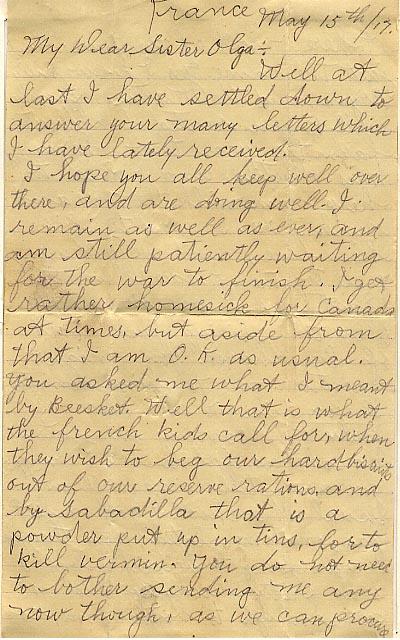 France May 15th/17.
My Dear Sister Olga:-
Well at
last I have settled down to
answer your many letters which
I have lately received.
I hope you all keep well over
there, and are doing well. I
remain as well as ever, and
am still patiently waiting
for the war to finish. I get
rather homesick for Canada
at times, but aside from
that I am O.K. as usual.
You asked me what I meant
by Beesket. Well that is what
the french kids call for, when
they wish to beg our hardbiscuits
out of our reserve rations, and
by Sabadilla that is a
powder put up in tins, for to
kill vermin. You do not need
to bother sending me any
now though, as we can procure